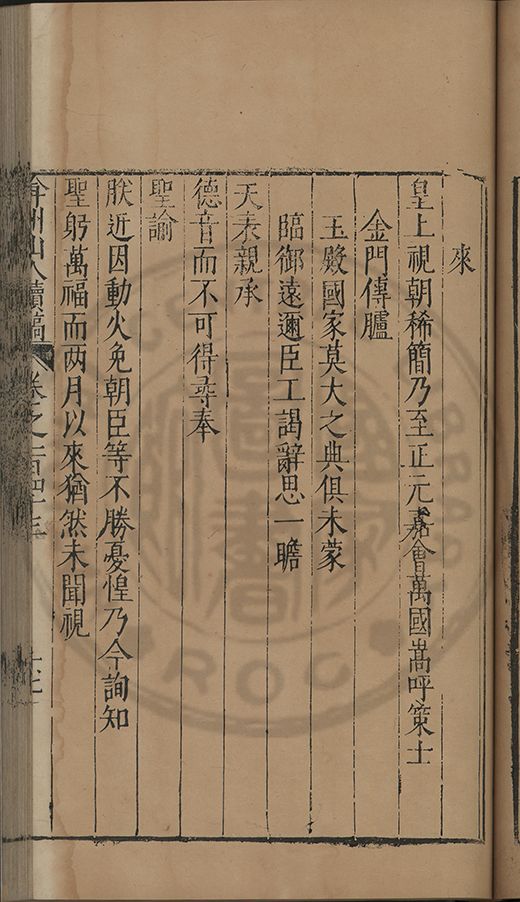 來
皇上視朝稀簡乃至正元嘉會萬國嵩呼策士
金門傳臚
玉殿國家莫大之典俱未蒙
臨御遠邇臣工謁辭思一瞻
天表親承
德音而不可得尋奉
聖諭
朕近因動火免朝臣等不勝憂惶乃今詢知
聖躬萬福而两月以來猶然未聞視
弇州山人續稿 卷之一百四十三 十七